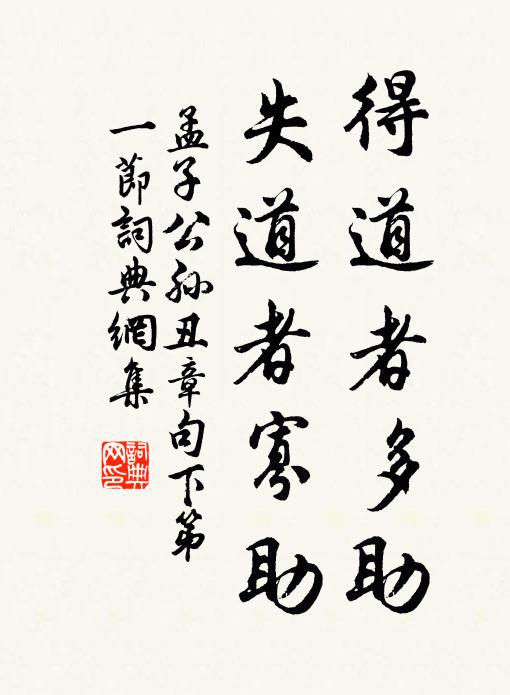 得道者多助
失道者寡助
孟子公孫丑章句下第
一節詞典網集
詞典网印